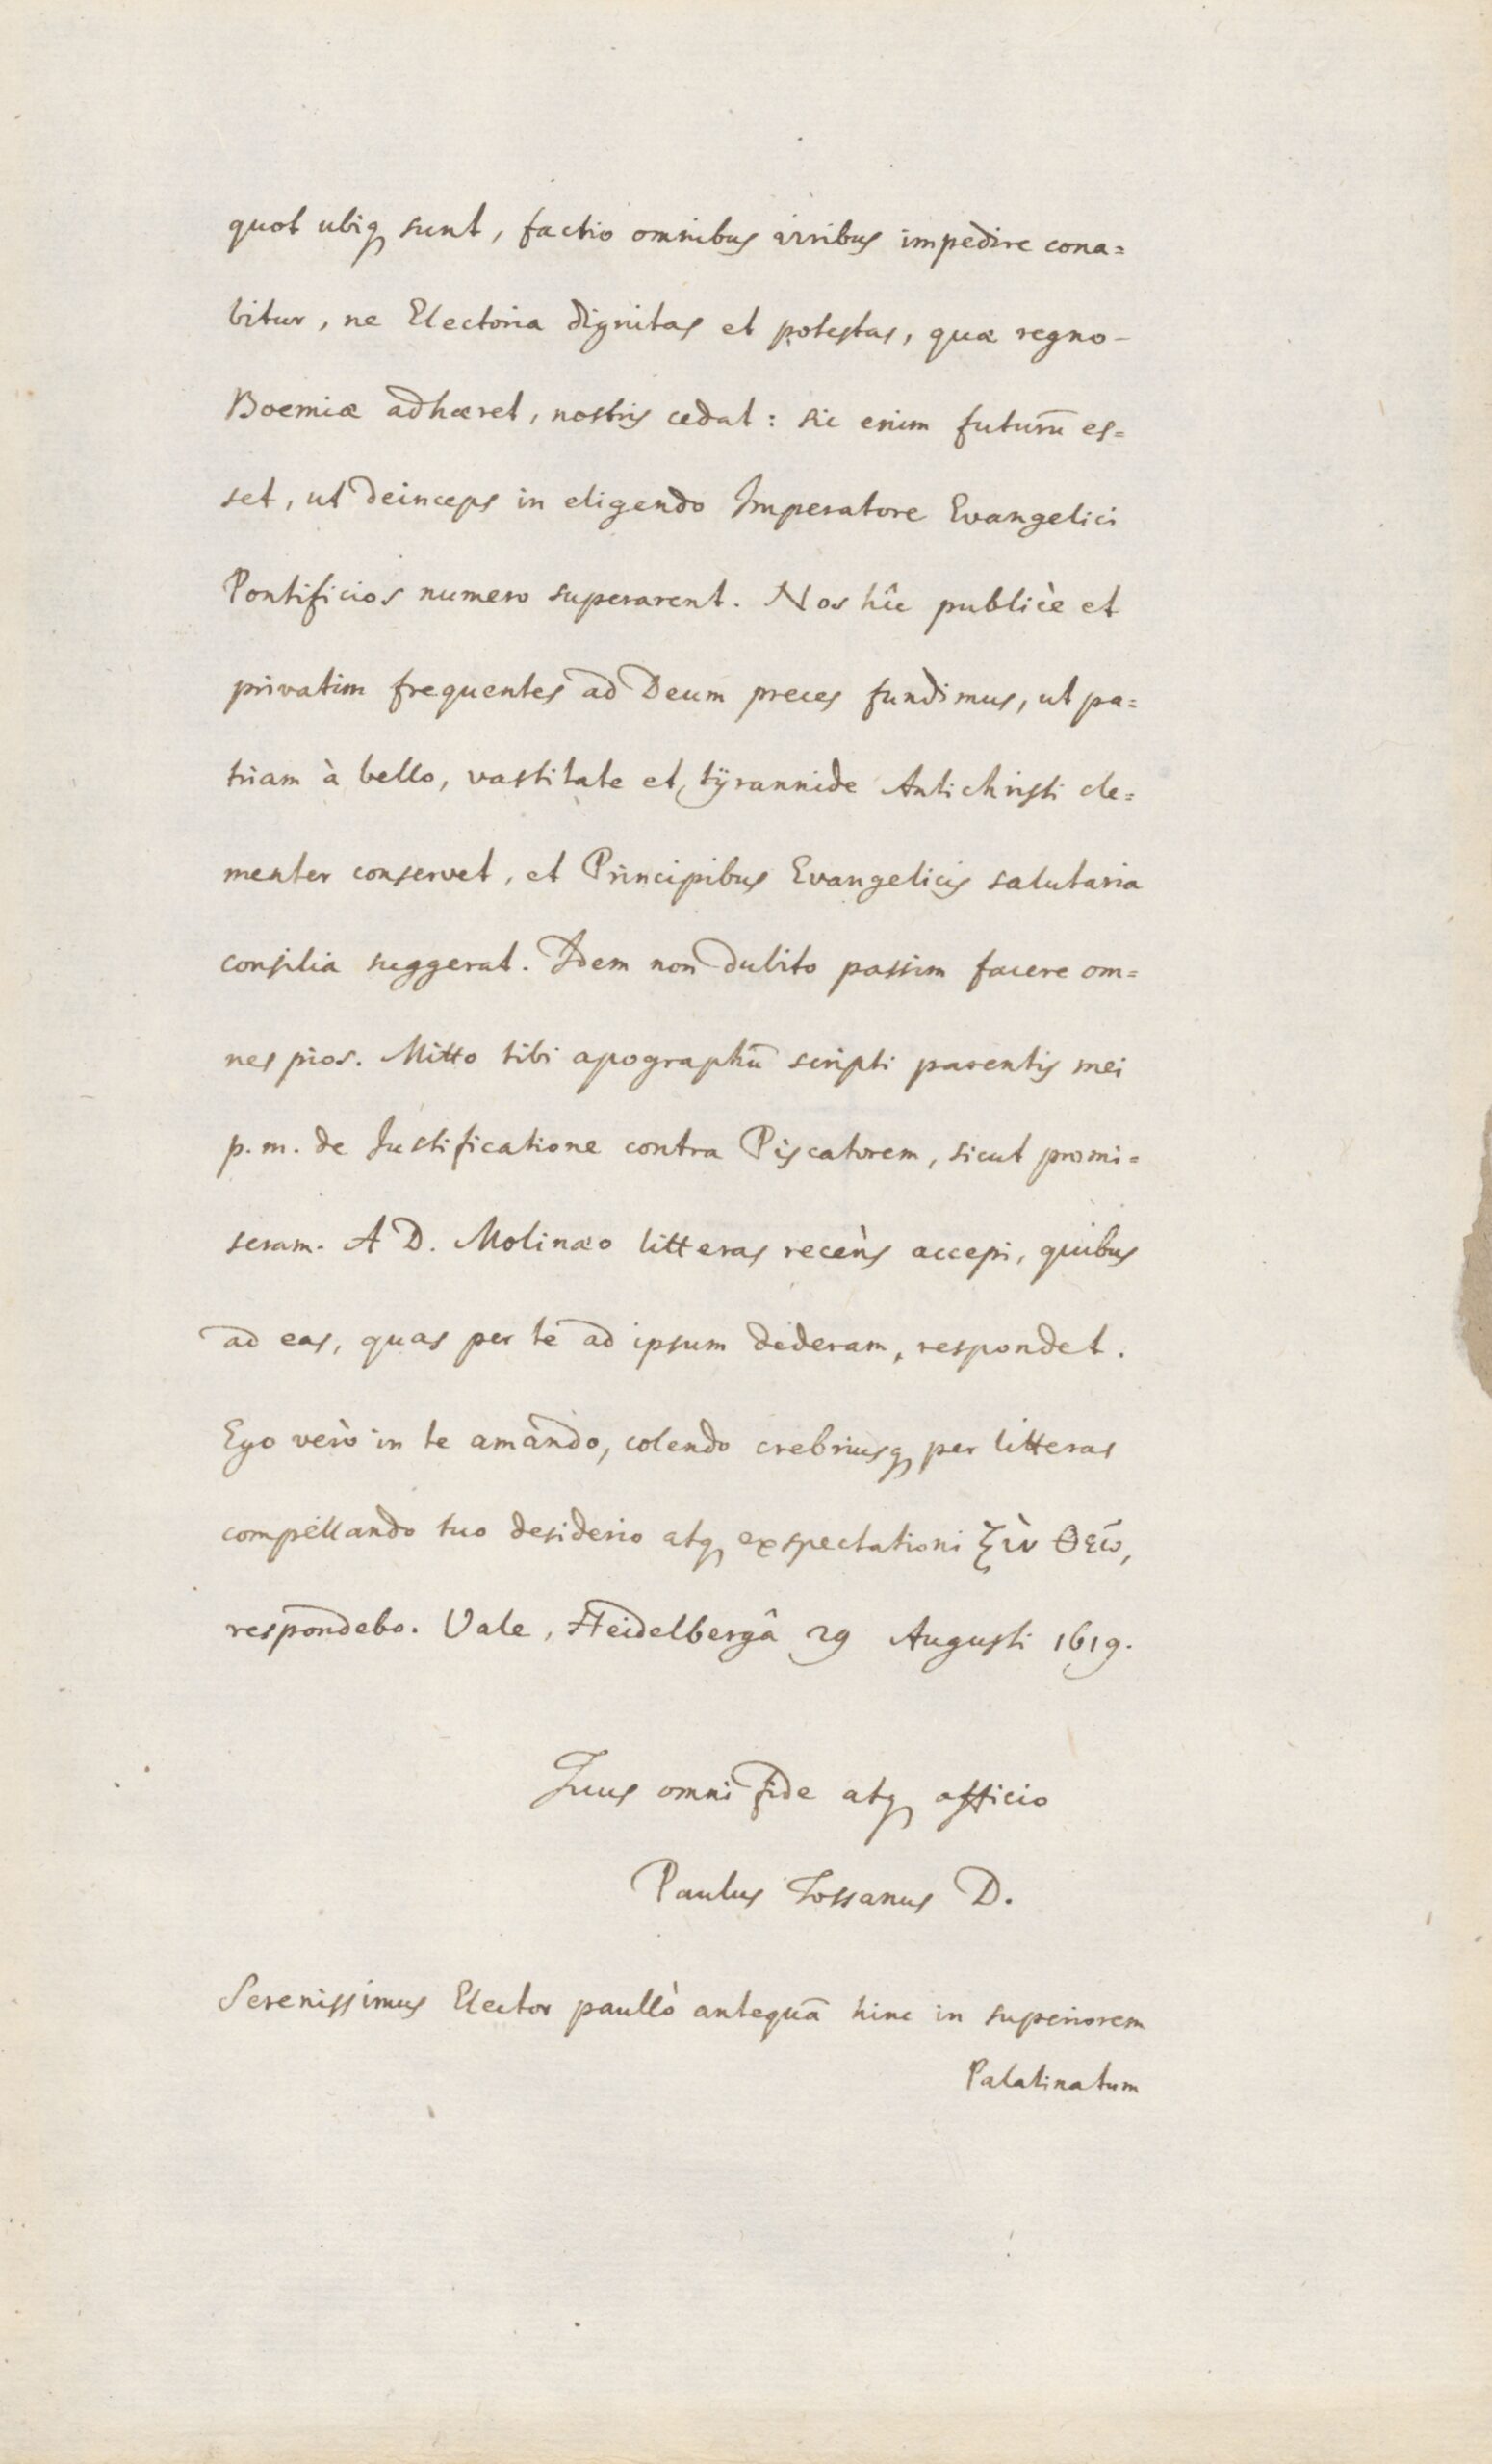 quot ubiq sunt, factio omnibus viribus impedire cona=
bitur, ne Electoria dignitas et potestas, quæ regno-
Boemiæ adhæret, nostris cedat: sic enim futurū es=
set, ut deinceps in eligendo Imperatore Evangelici
Pontificios numero superarent. Nos hîc publicè et
privatim frequentes ad Deum preces fundimus, ut pa=
triam à bello, vastitate et tÿrannide Antichristi cle=
menter conservet, et Principibus Evangelicis salutaria
consilia suggerat. Idem non dubito passim facere om=
nes pios. Mitto tibi apographū scripti parentis mei
p.m. de Iustificatione contra Piscatorem, sicut promi=
seram. A D. Molinæo litteras recèns accepi, quibus
ad eas, quas per te ad ipsum dederam, respondet.
Ego verò in te amando, colendo crebriusq per litteras
compellando tuo desiderio atq exspectationi ξὺν Θεῷ,
respondebo. Vale, Heidelbergâ 29 Augusti 1619.
Tuus omni fide atq officio
Paulus Tossanus D.
Serenissimus Elector paullò antequā hinc in superiorem
Palatinatum